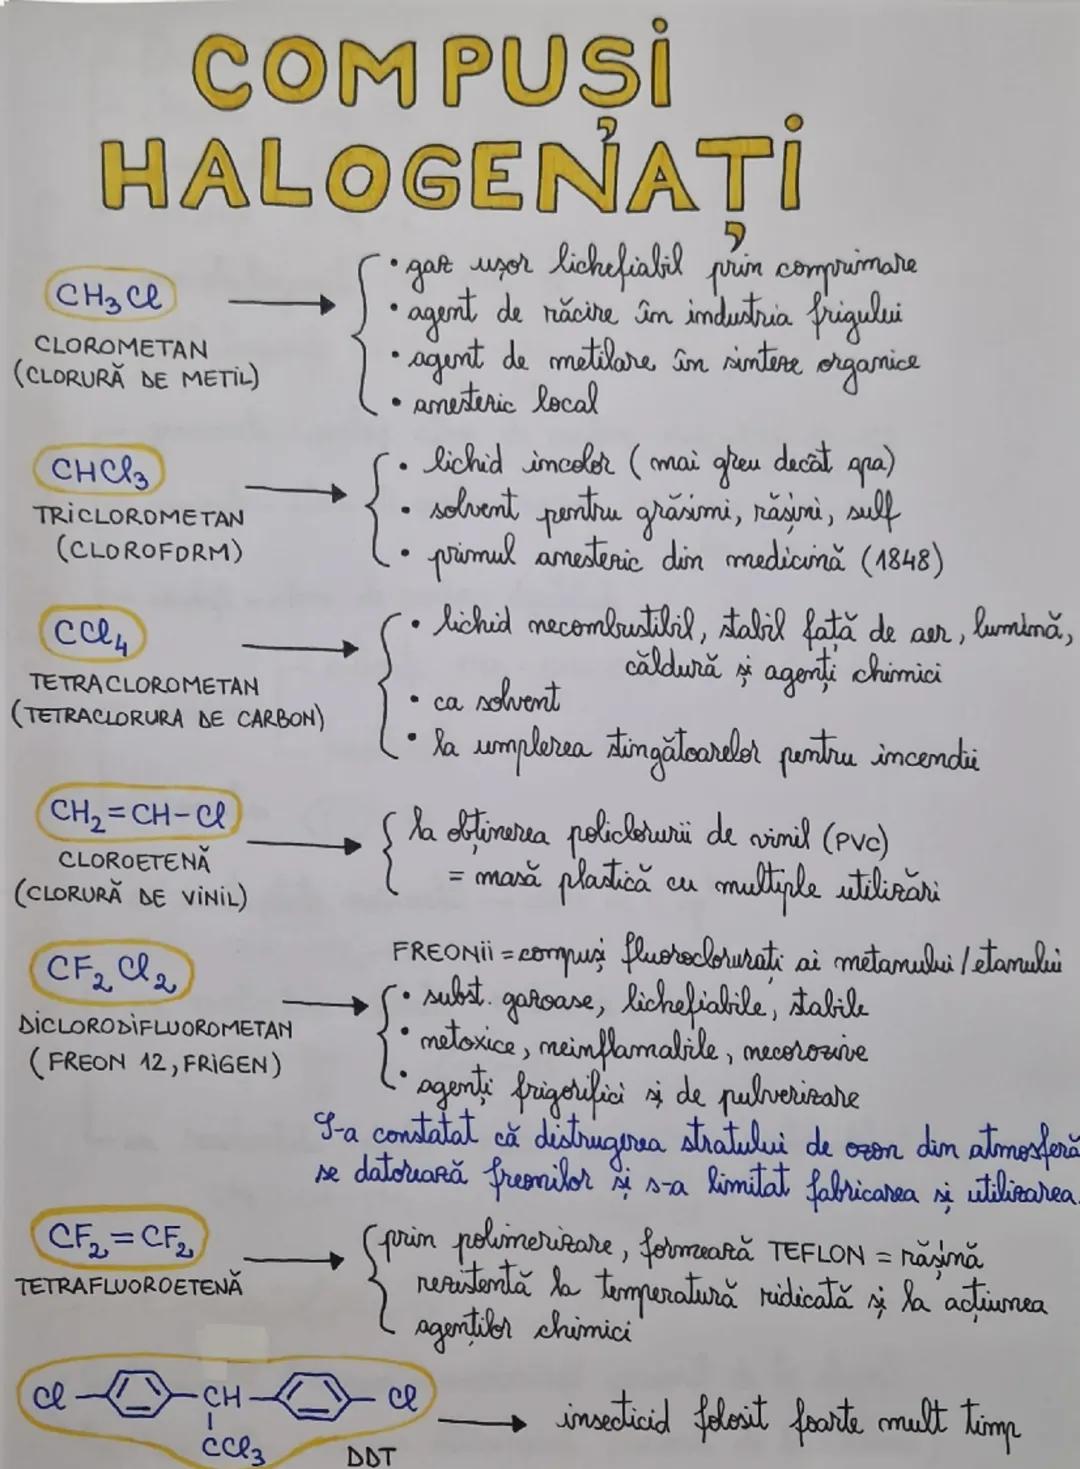 COMPUȘI
HALOGENAȚI
CH₃Cl
CLOROMETAN
(CLORURĂ DE METIL)
• gaz ușor lichefiabil prin comprimare
• agent de răcire în industria frigului
• agent de metilare în sinteze organice
• anestezic local
CHCl₃
TRICLOROMETAN
(CLOROFORM)
• lichid incolor (mai greu decât apa)
• solvent pentru grăsimi, rășini, sulf
• primul anestezic din medicină (1848)
CCl₄
TETRACLOROMETAN
(TETRACLORURA DE CARBON)
• lichid necombustibil, stabil față de aer, lumină,
căldură și agenți chimici
• ca solvent
• la umplerea stingătoarelor pentru incendii
CH₂=CH-Cl
CLOROETENĂ
(CLORURĂ DE VINIL)
la obținerea policlorurii de vinil (PVC)
= masă plastică cu multiple utilizări
CF₂Cl₂
DICLORODIFLUOROMETAN
(FREON 12, FRIGEN)
FREONII = compuși fluoroclorurați ai metanului/etanului
• subst. gazoase, lichefiabile, stabile
• netoxice, neinflamabile, necorozive
• agenți frigorifici și de pulverizare
S-a constatat că distrugerea stratului de ozon din atmosferă
se datorează freonilor și s-a limitat fabricarea și utilizarea.
CF₂=CF₂
TETRAFLUOROETENĂ
prin polimerizare, formează TEFLON = rășină
rezistentă la temperatură ridicată și la acțiunea
agenților chimici
Cl CH Cl
CCl₃
DDT
insecticid folosit foarte mult timp